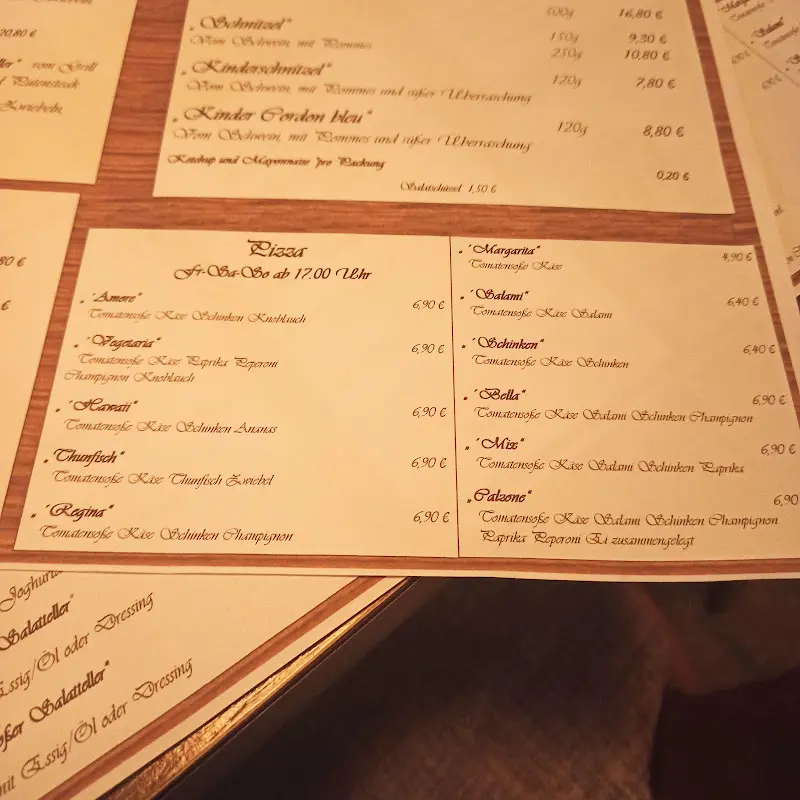 20,80 €
vom Grill
Putensteak
Zwiebeln,
500g 16,80 €
„Schnitzel“ 150g 9,30 €
Vom Schwein, mit Pommes 250g 10,80 €
„Kinderschnitzel“ 120g 7,80 €
Vom Schwein, mit Pommes und süßer Überraschung
„Kinder Cordon bleu“ 120g 8,80 €
Vom Schwein, mit Pommes und süßer Überraschung
Ketchup und Mayonnaise pro Packung 0,20 €
Salatschüssel 1,50 €
Pizza
Fr-Sa-So ab 17.00 Uhr
„´Amore“ 6,90 €
Tomatensoße Käse Schinken Knoblauch
„´Vegetaria“ 6,90 €
Tomatensoße Käse Paprika Peperoni
Champignon Knoblauch
„´Hawaii“ 6,90 €
Tomatensoße Käse Schinken Ananas
„Thunfisch“ 6,90 €
Tomatensoße Käse Thunfisch Zwiebel
„´Regina“ 6,90 €
Tomatensoße Käse Schinken Champignon
„´Margarita“ 4,90 €
Tomatensoße Käse
„´Salami“ 6,40 €
Tomatensoße Käse Salami
„´Schinken“ 6,40 €
Tomatensoße Käse Schinken
„´Bella“ 6,90 €
Tomatensoße Käse Salami Schinken Champignon
„´Mix“ 6,90 €
Tomatensoße Käse Salami Schinken Paprika
„Calzone“ 6,90
Tomatensoße Käse Salami Schinken Champignon
Paprika Peperoni Ei zusammengelegt
Salatteller“
Essig/Öl oder Dressing
Salatteller“
mit Essig/Öl oder Dressing